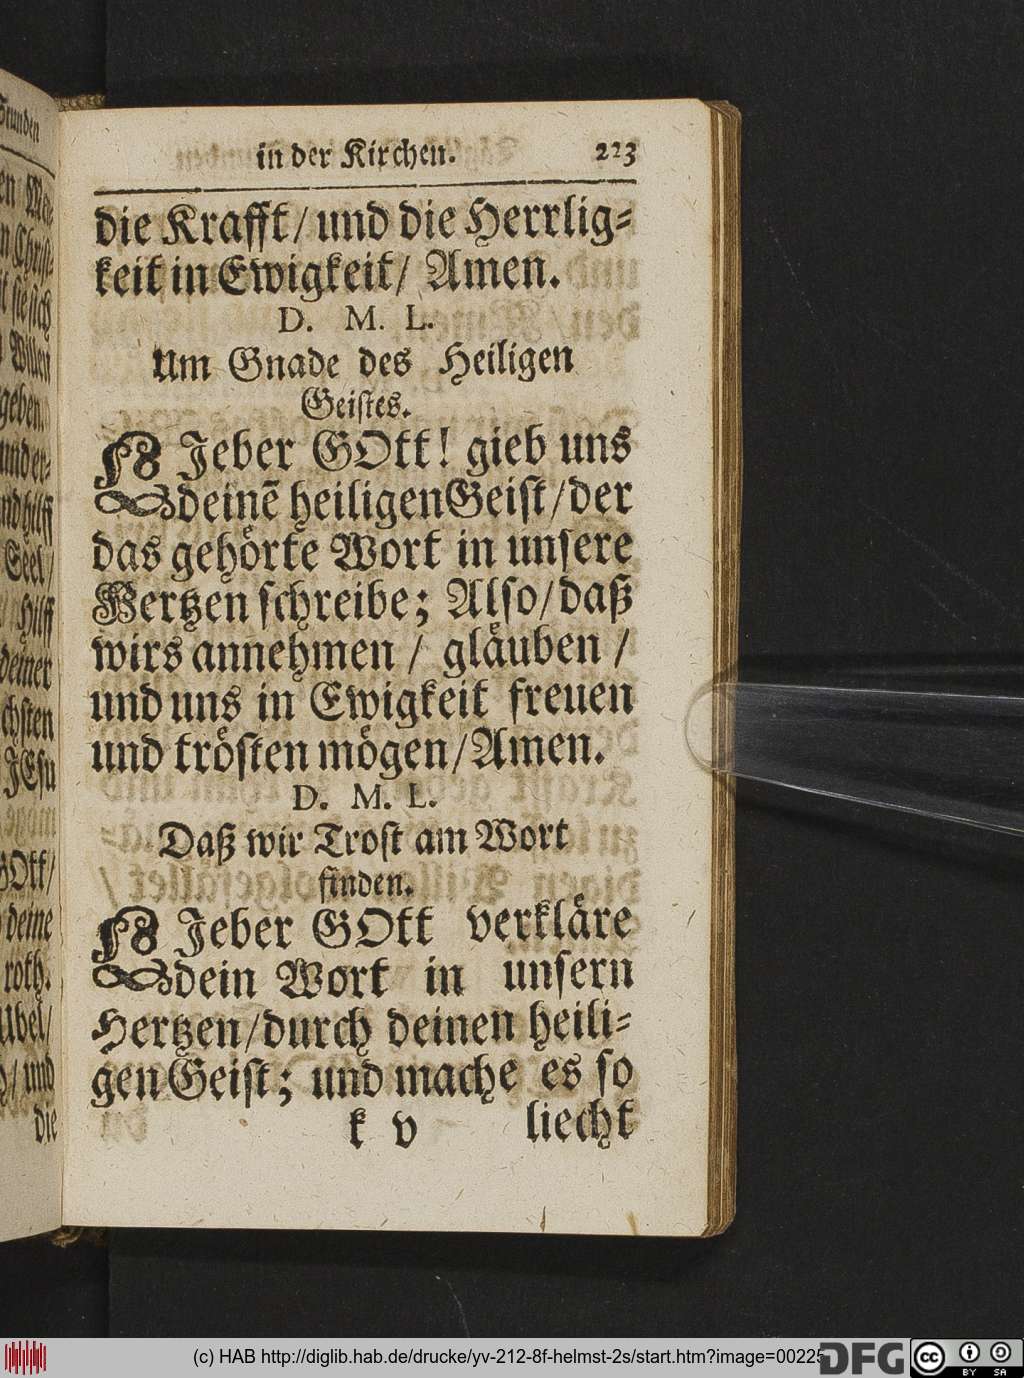 Stunden
geben.
Seel/
Hilff
deiner
chsten
JEsu
GOtt/
deine
roth.
Ubel/
und
die
in der Kirchen. 223
die Krafft/ und die Herrlig=
keit in Ewigkeit/ Amen.
D. M. L.
Um Gnade des Heiligen
Geistes.
LJeber GOtt! gieb uns
deinē heiligen Geist/ der
das gehörte Wort in unsere
Hertzen schreibe; Also/ daß
wirs annehmen / gläuben /
und uns in Ewigkeit freuen
und trösten mögen/ Amen.
D. M. L.
Daß wir Trost am Wort
finden.
LJeber GOtt verkläre
dein Wort in unsern
Hertzen/ durch deinen heili=
gen Geist; und mache es so
k v liecht
(c) HAB http://diglib.hab.de/drucke/yv-212-8f-helmst-2s/start.htm?image=00225
DFG
cc BY SA